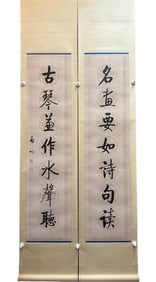 名画要如诗句读
古琴并作水聲聽